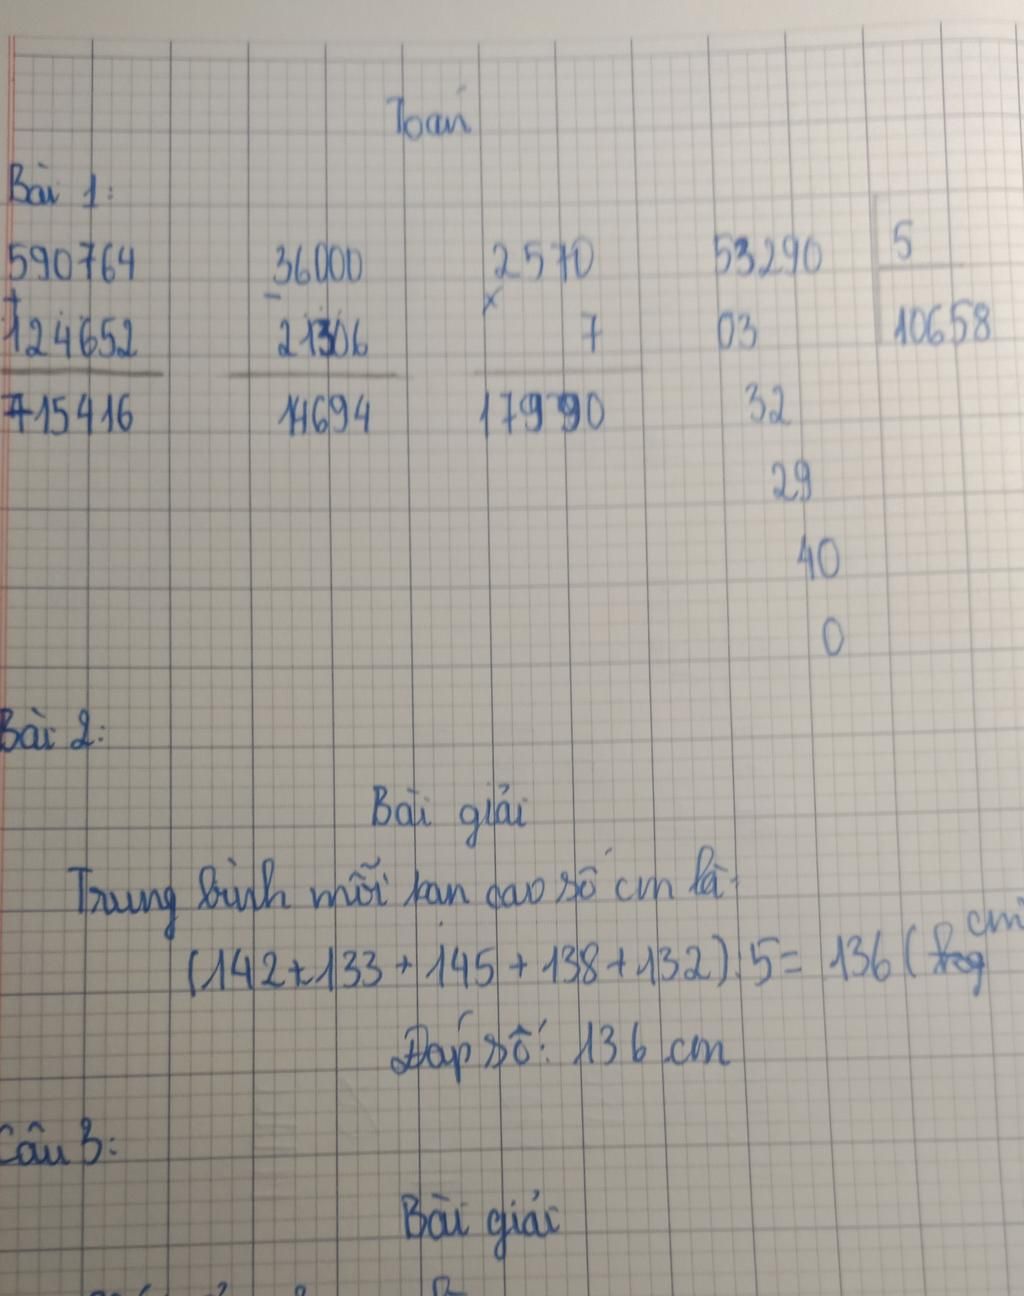 Toán
Bài 1:
590764 36000 2570 53290 5
+ - x
124652 21306 7 03 10658
715416 14694 17990 32
29
40
0
Bài 2:
Bài giải
Trung bình mỗi bạn cao số cm là:
(142 + 133 + 145 + 138 + 132) : 5 = 136 ( cm
Đáp số: 136 cm
Câu 3:
Bài giải